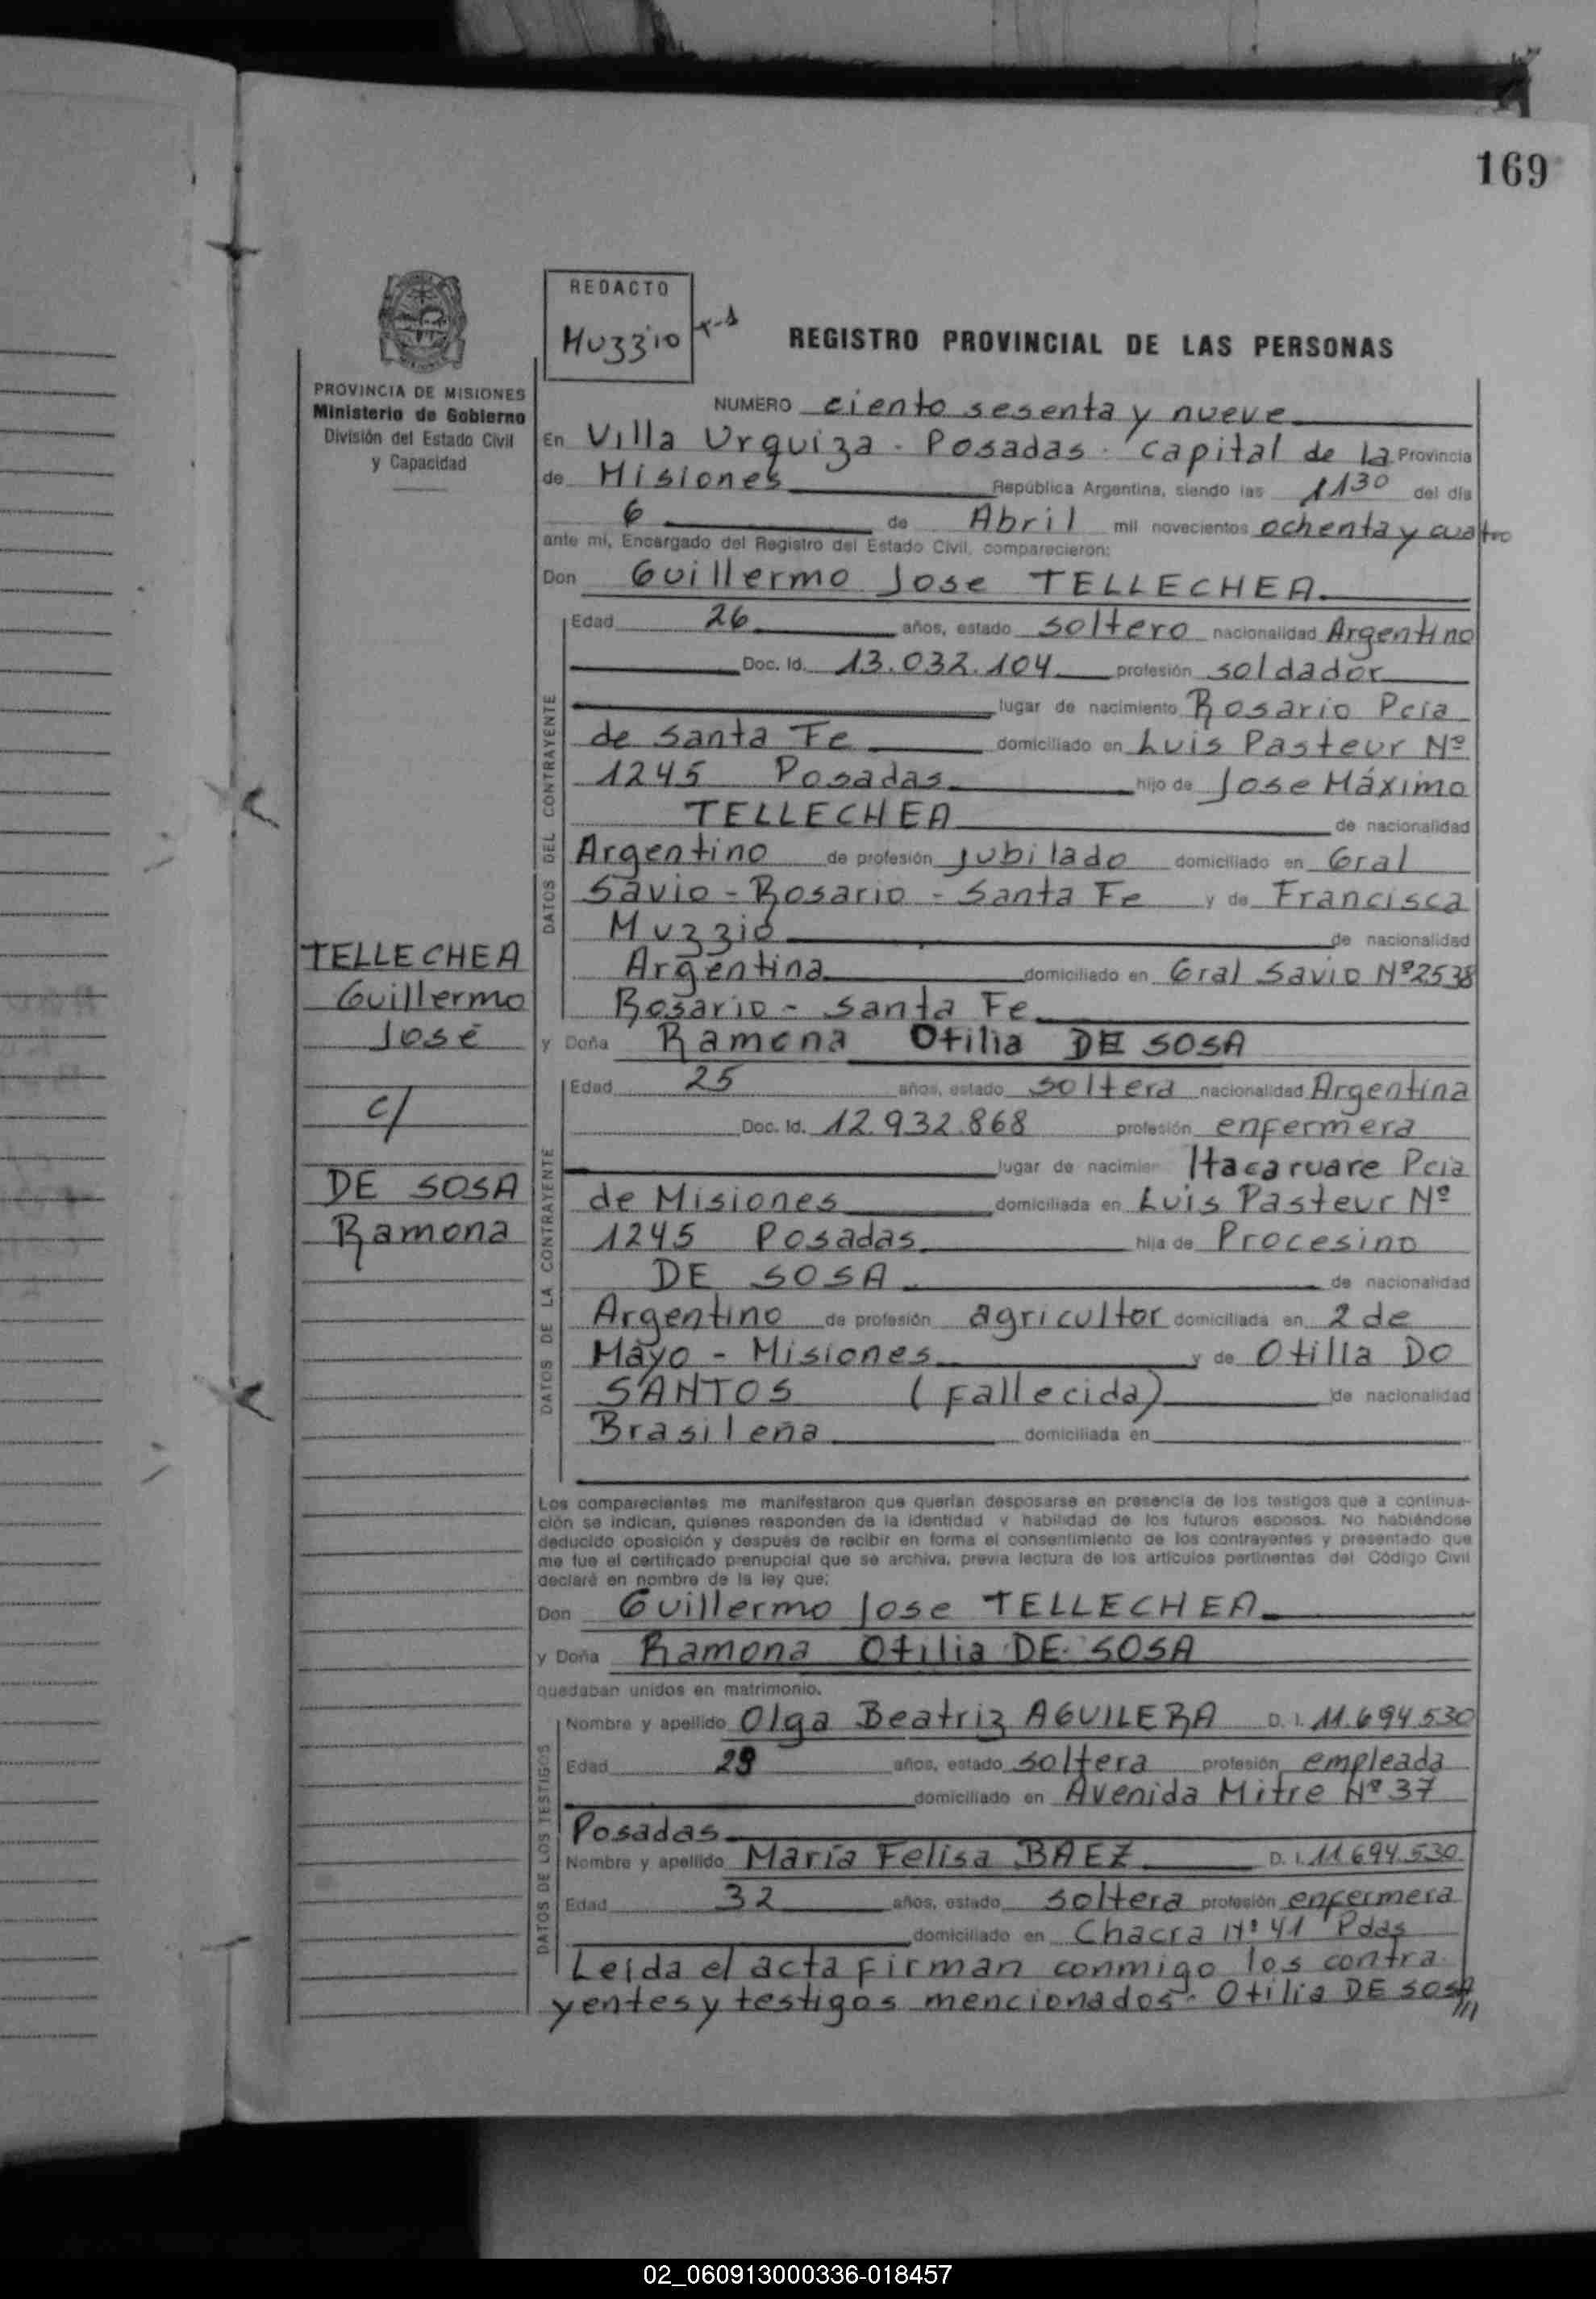 169
REDACTO
Muzzio
REGISTRO PROVINCIAL DE LAS PERSONAS
PROVINCIA DE MISIONES
Ministerio de Gobierno
División del Estado Civil
y Capacidad
NUMERO ciento sesenta y nueve
En Villa Urquiza - Posadas - capital de la Provincia
de Misiones República Argentina, siendo las 1130 del día
6 de Abril mil novecientos ochenta y cuatro
ante mí, Encargado del Registro del Estado Civil, comparecieron:
Don Guillermo Jose TELLECHEA
DATOS DEL CONTRAYENTE
Edad 26 años, estado soltero nacionalidad Argentino
Doc. Id. 13.032.104 profesión soldador
lugar de nacimiento Rosario Pcia
de Santa Fe domiciliado en Luis Pasteur Nº
1245 Posadas hijo de Jose Máximo
TELLECHEA de nacionalidad
Argentino de profesión jubilado domiciliado en Gral
Savio - Rosario - Santa Fe y de Francisca
Muzzio de nacionalidad
Argentina domiciliado en Gral Savio Nº 2538
Rosario - Santa Fe
TELLECHEA
Guillermo
José
c/
DE SOSA
Ramona
y Doña Ramona Otilia DE SOSA
DATOS DE LA CONTRAYENTE
Edad 25 años, estado soltera nacionalidad Argentina
Doc. Id. 12.932.868 profesión enfermera
lugar de nacimien Itacaruare Pcia
de Misiones domiciliada en Luis Pasteur Nº
1245 Posadas hija de Procesino
DE SOSA de nacionalidad
Argentino de profesión agricultor domiciliada en 2 de
Mayo - Misiones y de Otilia DO
SANTOS (Fallecida) de nacionalidad
Brasileña domiciliada en
Los comparecientes me manifestaron que querían desposarse en presencia de los testigos que a continua-
ción se indican, quienes responden de la identidad y habilidad de los futuros esposos. No habiéndose
deducido oposición y después de recibir en forma el consentimiento de los contrayentes y presentado que
me fue el certificado prenupcial que se archiva, previa lectura de los artículos pertinentes del Código Civil
declaré en nombre de la ley que:
Don Guillermo Jose TELLECHEA
y Doña Ramona Otilia DE SOSA
quedaban unidos en matrimonio.
DATOS DE LOS TESTIGOS
Nombre y apellido Olga Beatriz AGUILERA D. I. 11.694.530
Edad 29 años, estado soltera profesión empleada
domiciliado en Avenida Mitre Nº 37
Posadas
Nombre y apellido María Felisa BAEZ D. I. 11.694.530
Edad 32 años, estado soltera profesión enfermera
domiciliado en Chacra Nº 41 Pdas
Leida el acta firman conmigo los contra
yentes y testigos mencionados - Otilia DE SOSA ///
02_060913000336-018457